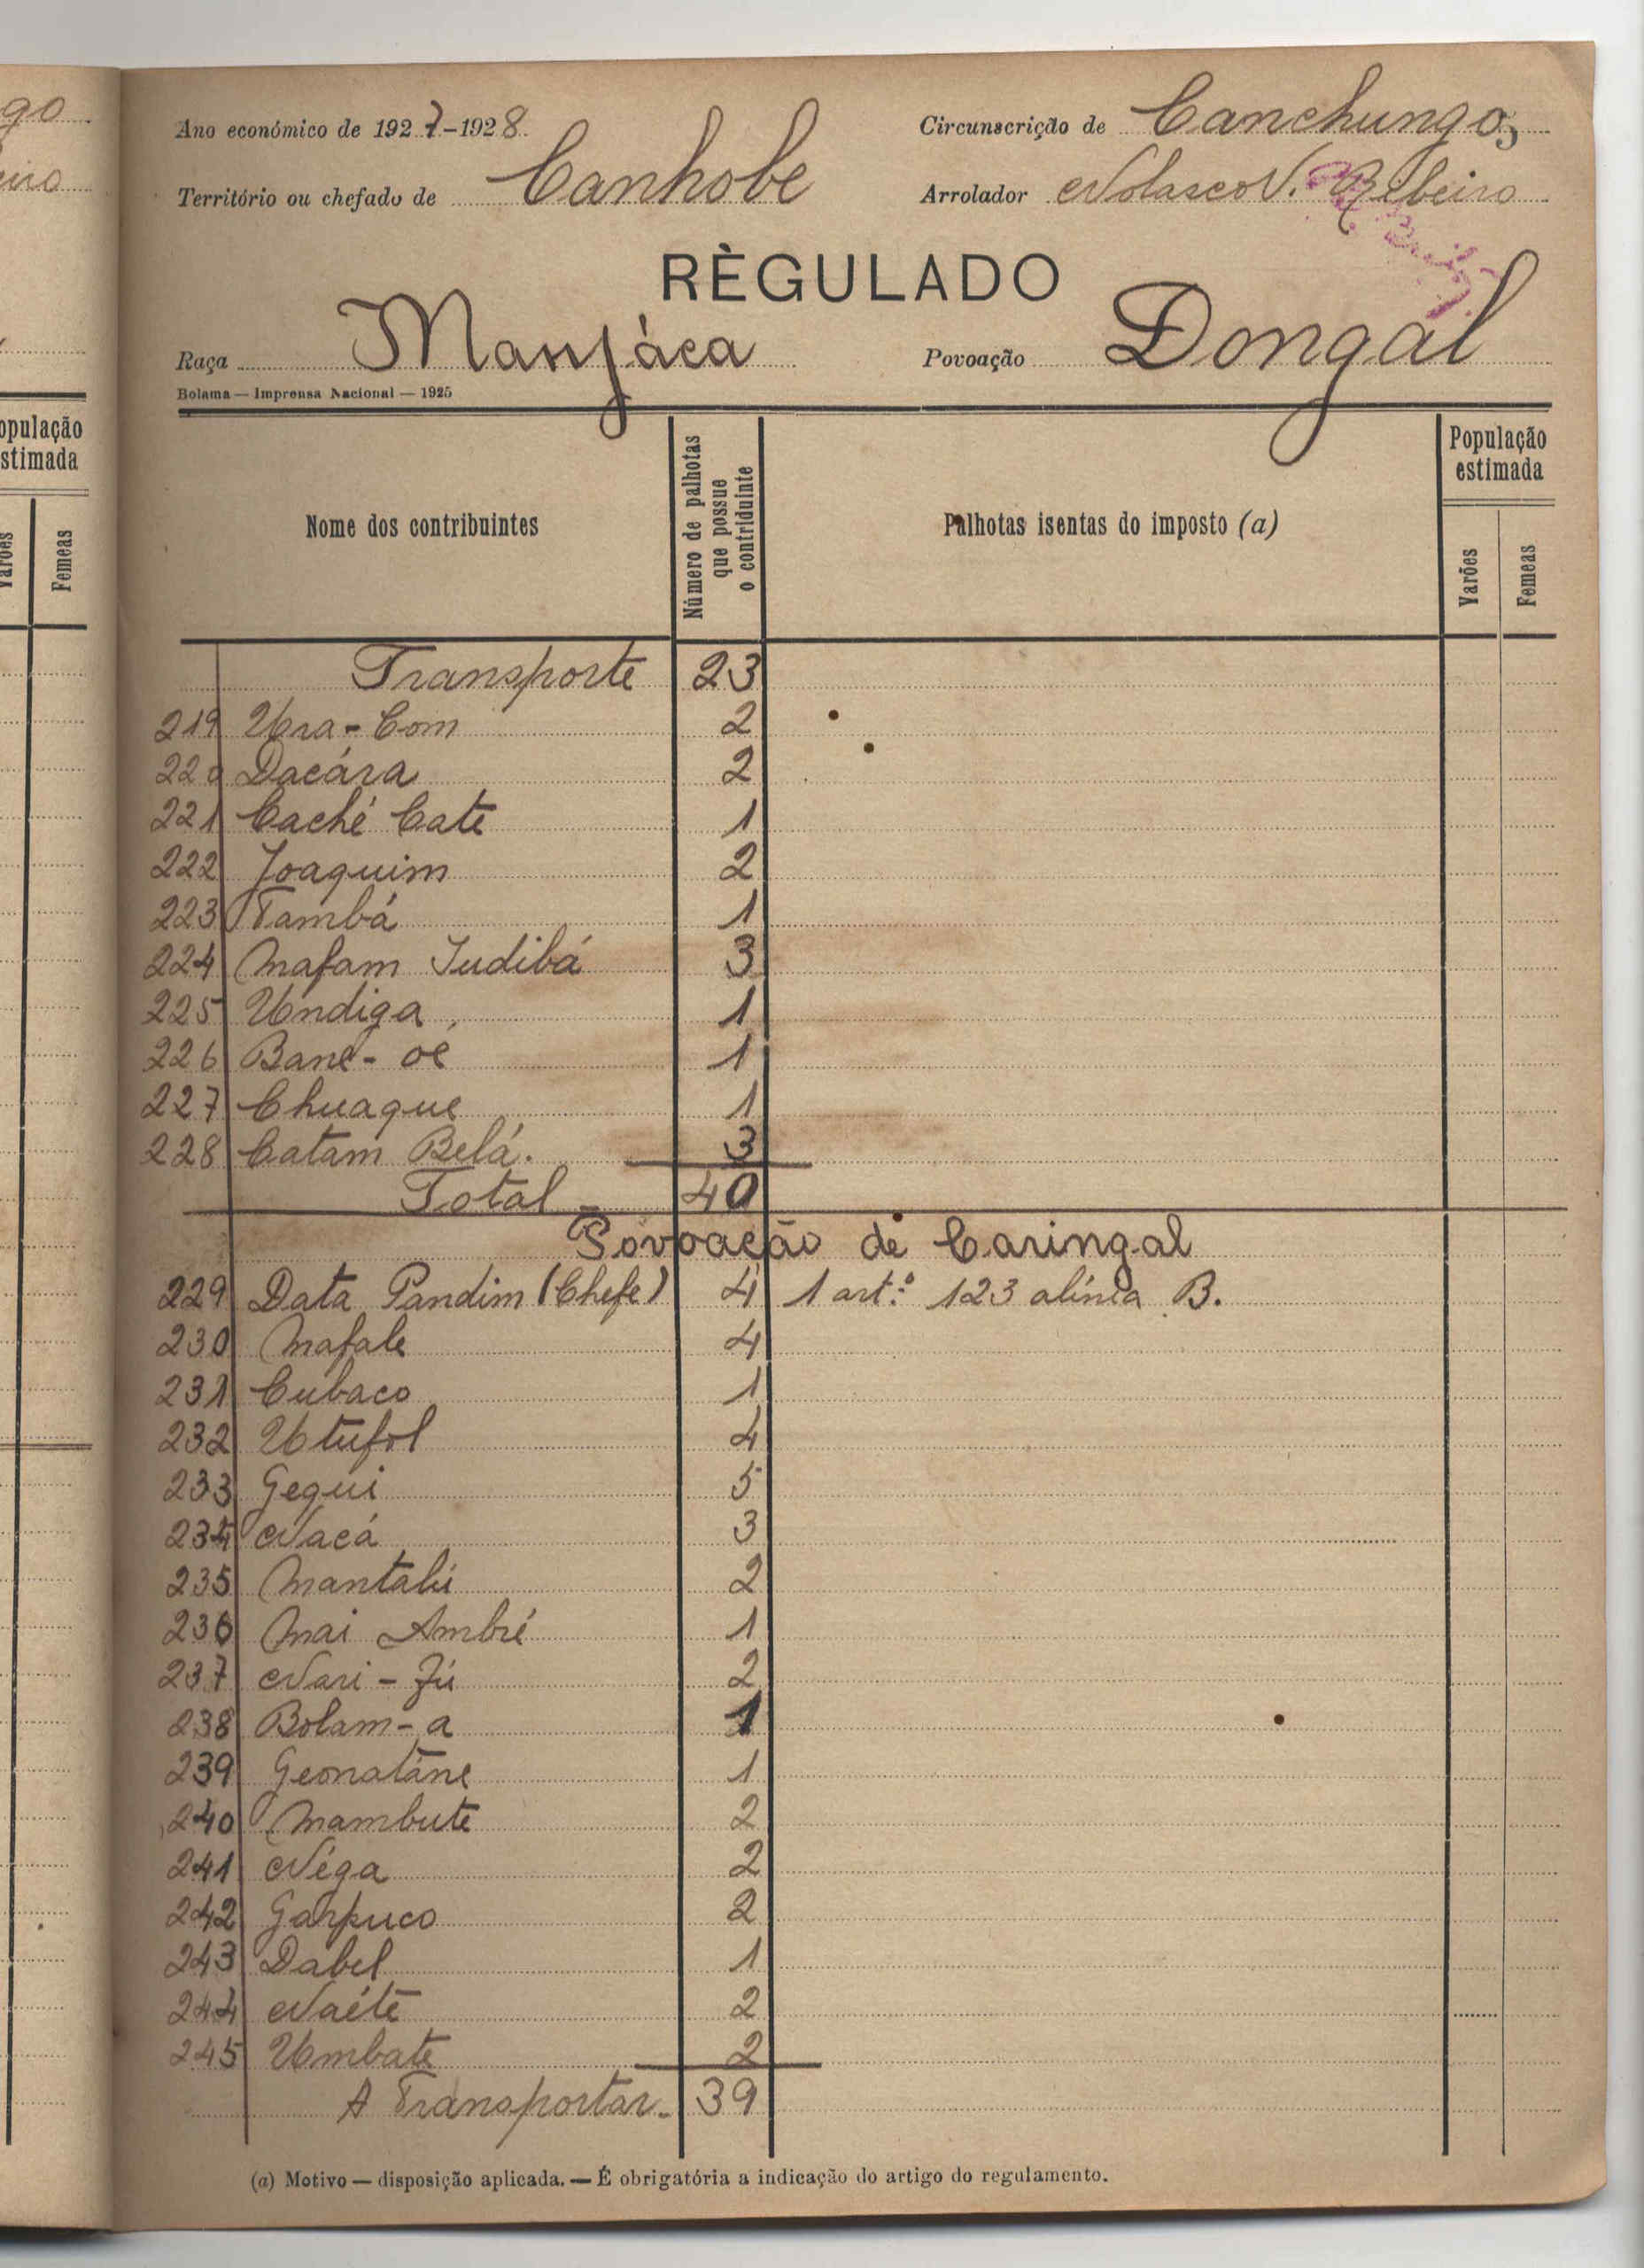 go
eiro
opulação
stimada
Varões
Femeas
Ano económico de 1927-1928
Circunscrição de Canchungo,
Território ou chefado de Canhobe
Arrolador Nolasco V. Ribeiro
RÈGULADO
Raça Manjáca
Povoação Dongal
Bolama — Imprensa Nacional — 1925
Nome dos contribuintes
Número de palhotas
que possue
o contriduinte
Palhotas isentas do imposto (a)
População
estimada
Varões
Femeas
Transporte 23
219 Ura-Com 2
220 Dacára 2
221 Caché Cate 1
222 Joaquim 2
223 Tambá 1
224 Mafam Iudibá 3
225 Undiga 1
226 Bane-oé 1
227 Chuaque 1
228 Catam Belá. 3
Total 40
Povoação de Caringal
229 Data Pandim (Chefe) 4 1 art.º 123 alínia B.
230 Mafale 4
231 Cubaco 1
232 Utufol 4
233 Gequi 5
234 Nacá 3
235 Mantalú 2
236 Mai Ambré 1
237 Nari-Jú 2
238 Bolam-a 1
239 Geonatáne 1
240 Mambute 2
241 Néga 2
242 Garpuco 2
243 Dabel 1
244 Naéte 2
245 Umbate 2
A Transportar- 39
(a) Motivo — disposição aplicada. — É obrigatória a indicação do artigo do regulamento.